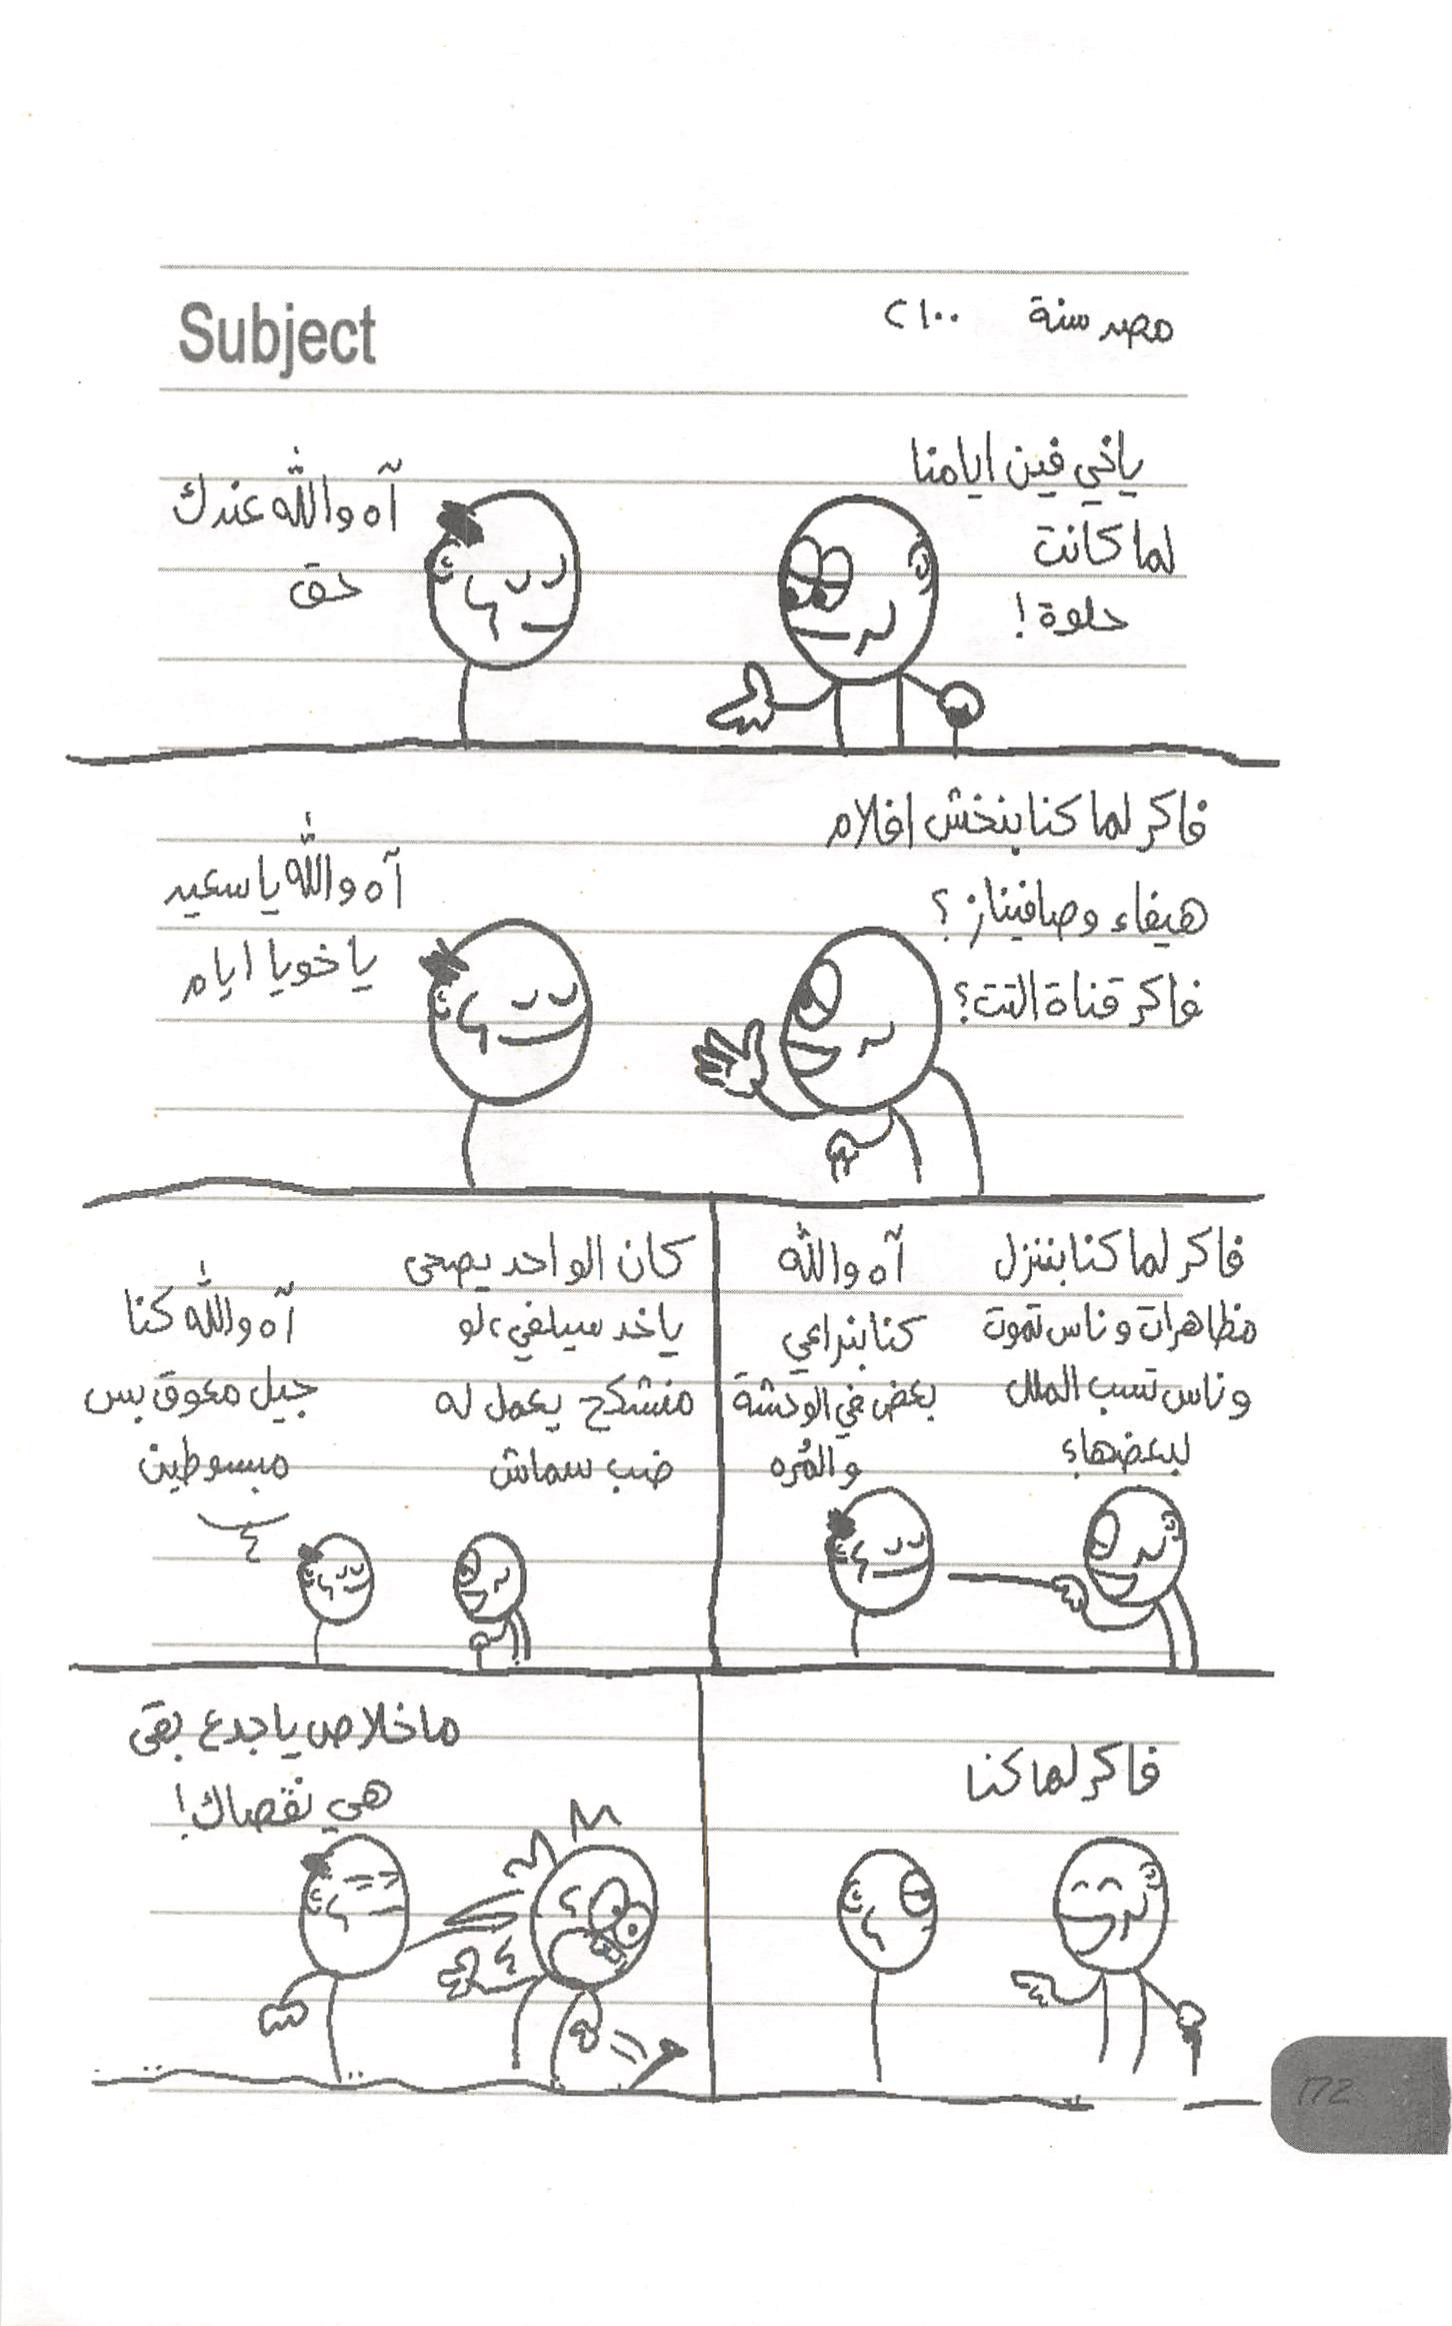 Subject
مصر سنة ٢١٠٠
ياخي فين ايامنا
لما كانت
حلوة!
آه والله عندك
حق
فاكر لما كنا بنخش افلام
هيفاء وصافيناز؟
فاكر قناة التت؟
آه والله يا سعيد
ياخويا ايام
فاكر لما كنا بننزل
مظاهرات وناس تموت
وناس تسب الملل
لبعضها؟
آه والله
كنا بنراعي
بعض في الوحشة
والمُره
كان الواحد يصحى
ياخد سيلفي، لو
منشكح يعمل له
ضب سماش
آه والله كنا
جيل معوق بس
مبسوطين
فاكر لما كنا
ما خلاص يا جدع بقى
هي نقصاك!
172